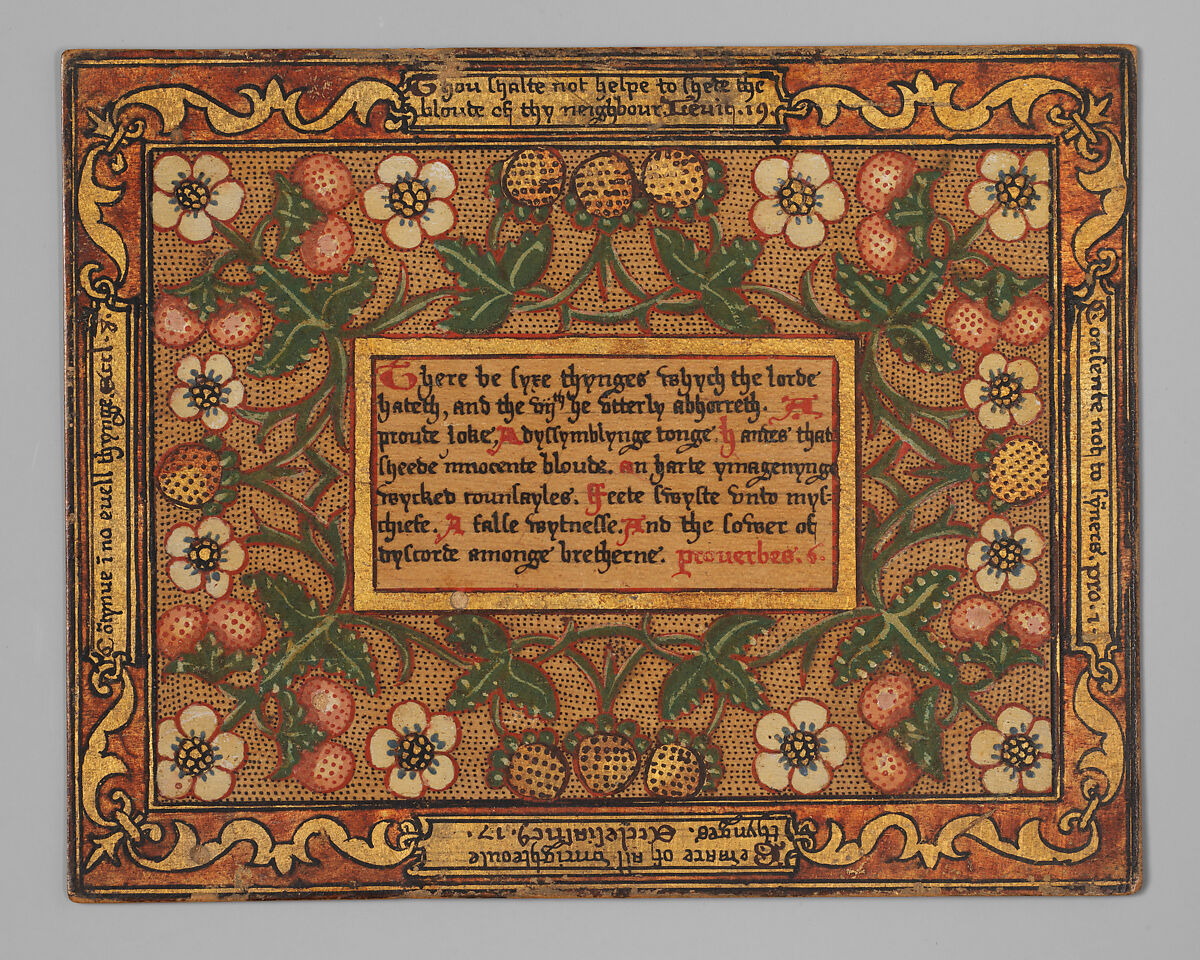 Thou shalte not helpe to shede the
bloude of thy neighbour. Leuit. 19
There be syxe thynges whych the lorde
hateth, and the vijth he vtterly abhorreth. A
proude loke, A dyssymblynge tonge. handes that
sheede innocente bloude. an harte ymagenynge
wycked counsayles. Feete swyfte vnto mys-
chiefe. A false wytnesse. And the sower of
dyscorde amonge bretherne. prouerbes. 6.
Consente not to syners. pro. 1.
Beware of all vnrighteouse
thynges. Ecclesiasticj. 17.
Cōtynue i no euell thynge. eccl. 8.